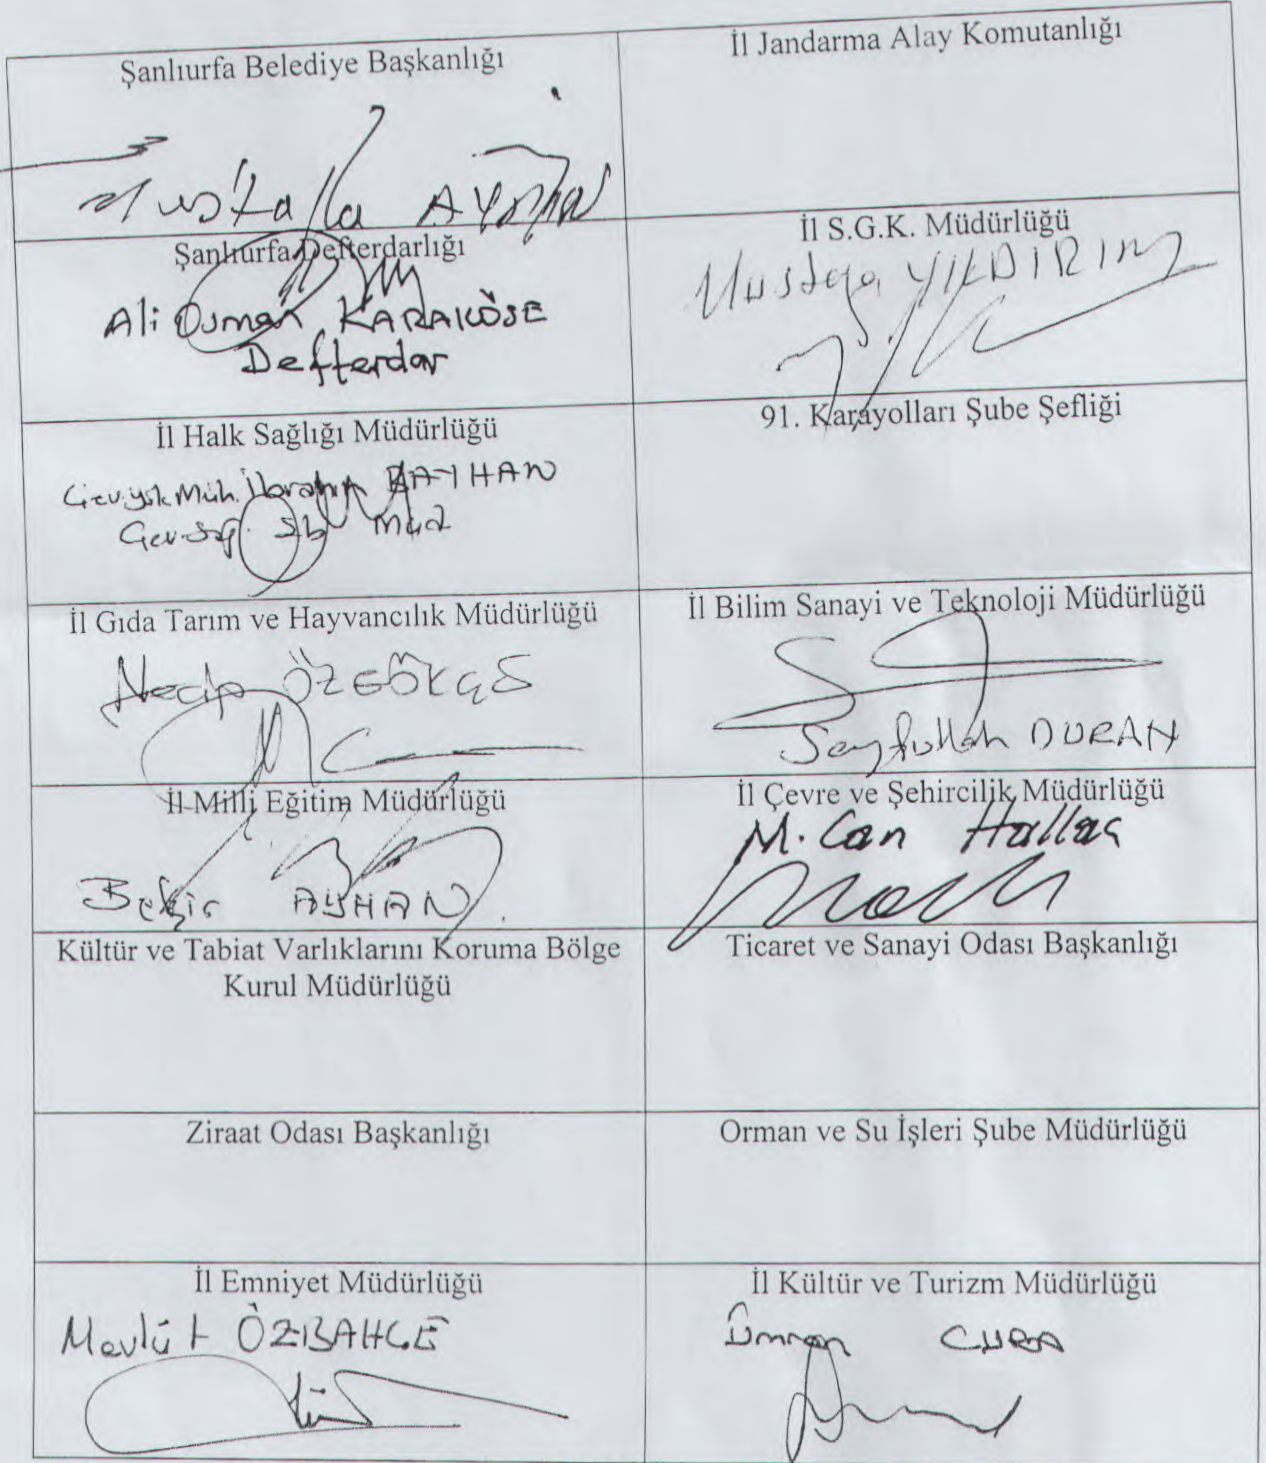 Şanlıurfa Belediye Başkanlığı
Mustafa
İl Jandarma Alay Komutanlığı
Şanlıurfa Defterdarlığı
Ali Osman KARAKÖSE
Defterdar
İl S.G.K. Müdürlüğü
Mustafa YILDIRIM
İl Halk Sağlığı Müdürlüğü
Çev.Yük.Müh. İbrahim BAYHAN
Çev. Sağ. Şb Müd
91. Karayolları Şube Şefliği
İl Gıda Tarım ve Hayvancılık Müdürlüğü
Necip ÖZGÖKÇE
İl Bilim Sanayi ve Teknoloji Müdürlüğü
Seyfullah DURAN
İl Milli Eğitim Müdürlüğü
Bekir AYHAN
İl Çevre ve Şehircilik Müdürlüğü
M. Can Hallaç
Kültür ve Tabiat Varlıklarını Koruma Bölge
Kurul Müdürlüğü
Ticaret ve Sanayi Odası Başkanlığı
Ziraat Odası Başkanlığı
Orman ve Su İşleri Şube Müdürlüğü
İl Emniyet Müdürlüğü
Mevlüt ÖZBAHÇE
İl Kültür ve Turizm Müdürlüğü
CURA